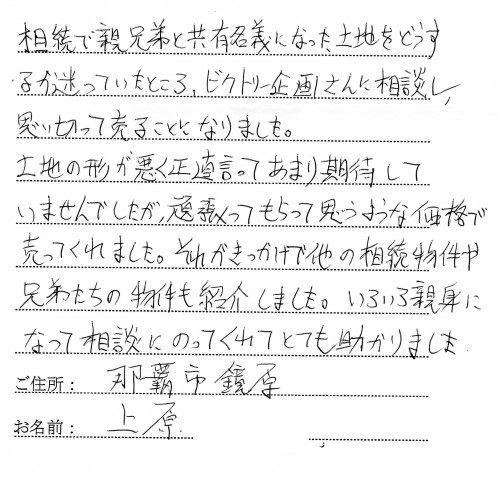 相続で親兄弟と共有名義になった土地をどうす
るか迷っていたところ、ビクトリー企画さんに相談し、
思い切って売ることになりました。
土地の形が悪く正直言ってあまり期待して
いませんでしたが、頑張ってもらって思うような価格で
売ってくれました。それがきっかけで他の相続物件や
兄弟たちの物件も紹介しました。いろいろ親身に
なって相談にのってくれてとても助かりました.
ご住所： 那覇市鏡原
お名前： 上原